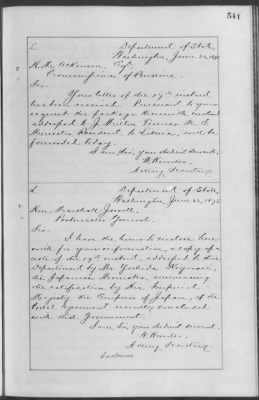 541
L
Department of State,
Washington, June 22, 187
H. M. Atkinson, Esq.
Commissioner of Pensions.
Sir:
Your letter of the 19th instant
has been received. Pursuant to your
request the package therewith enclosed
addressed to J. Milton Turner U. S.
Minister Resident to Liberia, will be
forwarded today.
I am, Sir, your obedient servant,
W. Hunter
Acting Secretary.
L
Department of State,
Washington, June 22, 187
Hon. Marshall Jewell,
Postmaster General.
Sir:
I have the honor to enclose here
with for your information, a copy of a
note of the 19th instant, addressed to this
Department by Mr. Yoshida Kiyonari,
the Japanese Minister, announcing
the ratification by His Imperial
Majesty the Emperor of Japan, of the
Postal agreement recently concluded
with this Government.
I am, Sir, your obedient servant,
W. Hunter
Acting Secretary.
Enclosure